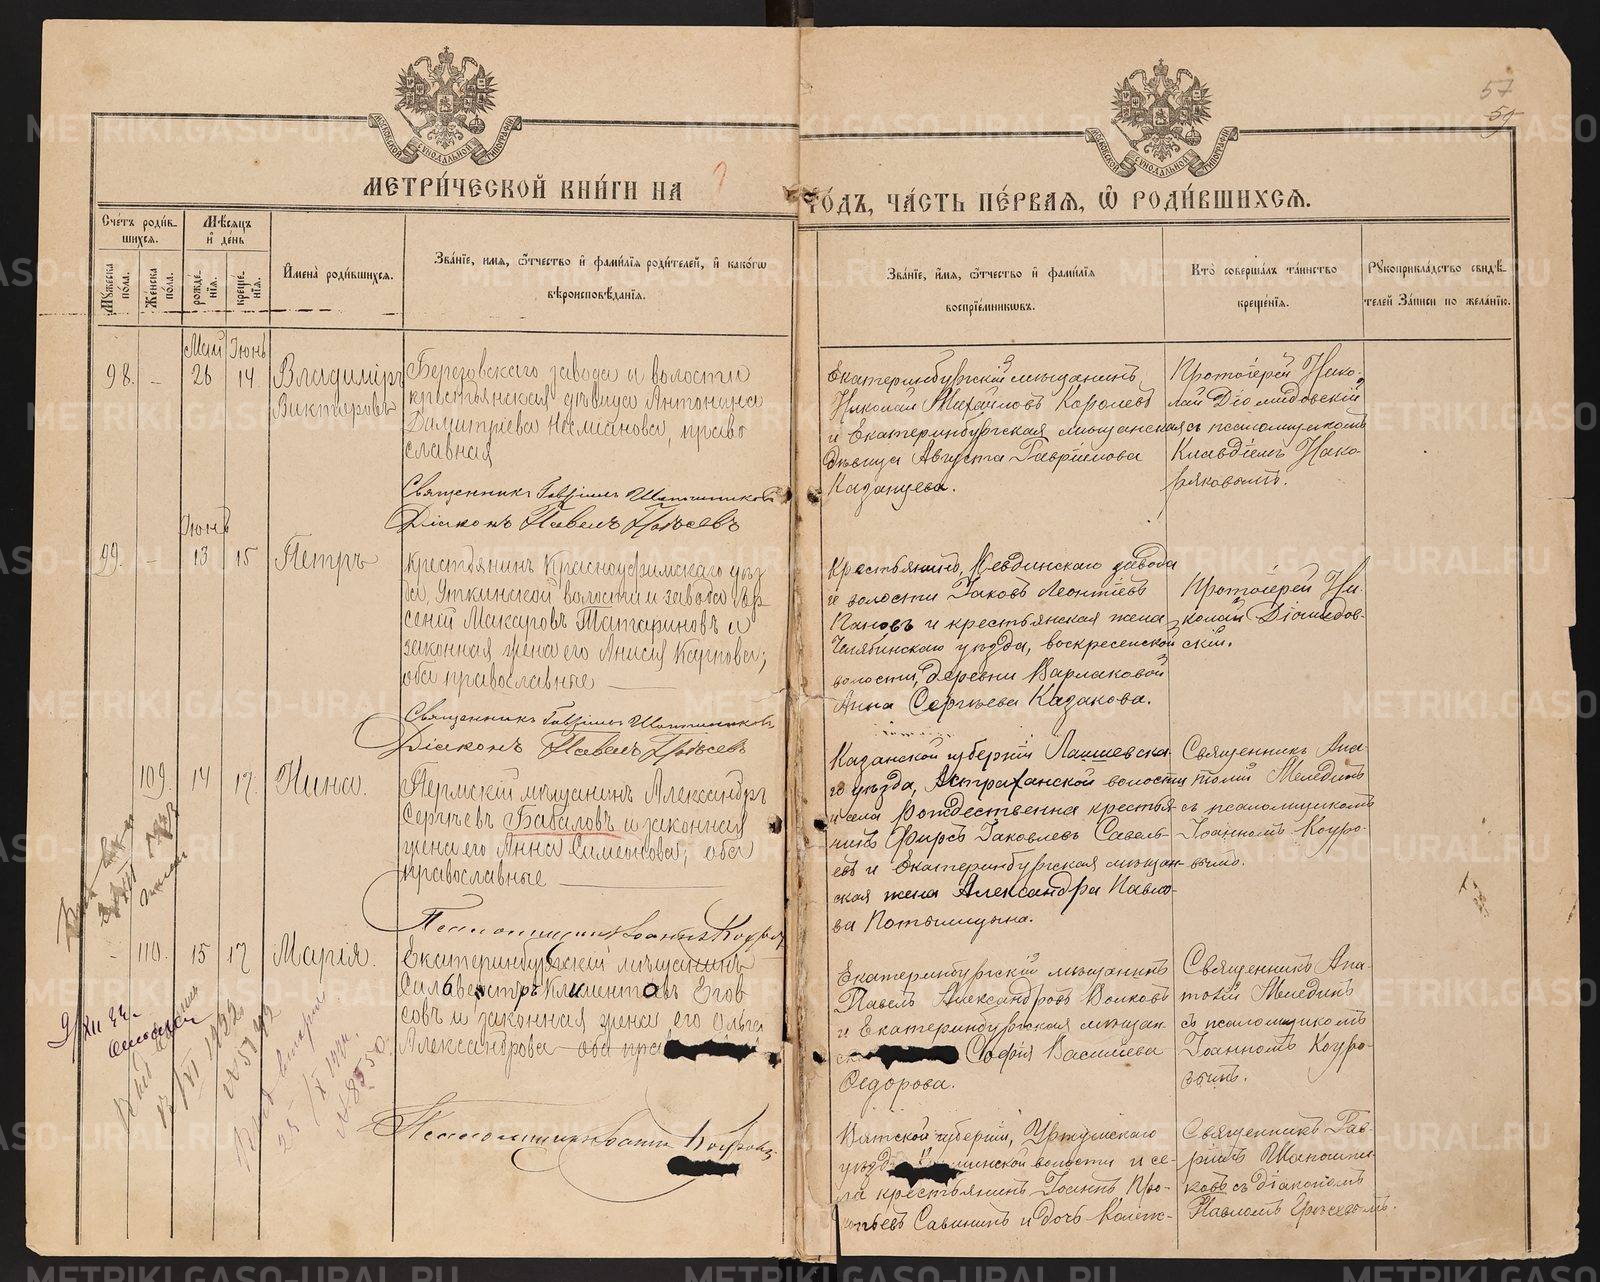 57
59
МОСКОВСКОЙ СѴНОДАЛЬНОЙ ТИПОГРАФІИ
МОСКОВСКОЙ СѴНОДАЛЬНОЙ ТИПОГРАФІИ
МЕТРИ́ЧЕСКОЙ КНИ́ГИ НА
ГО́ДЪ, ЧА́СТЬ ПЕ́РВАЯ, Ѡ҆ РОДИ́ВШИХСЯ.
Сче́тъ роди́в-
шихся.
Мѣ́сяцъ
и҆ де́нь
Му́жеска
по́ла.
Же́нска
по́ла.
рожде́-
нїя.
креще́-
нїя.
И҆мена̀ роди́вшихся.
Зва́нїе, и҆мя, ѻ҆́тчество и҆ фами́лїя роди́телей, и҆ како́гѡ
вѣроисповѣ́данїя.
Зва́нїе, и҆́мя, ѻ҆́тчество и҆ фами́лїя
воспрїе́мникѡвъ.
Кто̀ соверша́лъ та́инство
креще́нїя.
Рꙋкоприкла́дство свидѣ́-
телей за́писи по жела́нїю.
Май Іюнь
98. - 26 14 Владиміръ
Викторовъ
Березовскаго завода и волости
крестьянская дѣвица Антонина
Димитріева Несмѣянова, право
славная
Священникъ Гавріилъ Шапошниковъ
Діаконъ Павелъ
Екатеринбургскій мѣщанинъ
Николай Михайловъ Королевъ
и Екатеринбургская мѣщанская
дѣвица Августа Гавріилова
Казанцева.
Протоіерей Нико-
лай Діомидовскій
съ псаломщикомъ
Клавдіемъ Нако-
ряковымъ.
Іюнь
99. - 13 15 Петръ
Крестьянинъ Красноуфимскаго уѣз
да, Уткинской волости и завода Ар-
сеній Макаровъ Татариновъ и
законная жена его Анисія Карпова;
оба православные
Священникъ Гавріилъ Шапошниковъ
Діаконъ Павелъ
Крестьянинъ, Невьинскаго завода
и волости Іаковъ Леонтіевъ
Пановъ и крестьянская жена
Челябинскаго уѣзда, воскресенской
волости, деревни Варлаковой
Анна Сергѣева Казакова.
Протоіерей Ни-
колай Діомидов-
скій.
109. 14 17. Нина.
Пермскій мѣщанинъ Александръ
Сергѣевъ Бабаловъ и законная
жена его Анна Симеонова; оба
православные
Псаломщикъ Іоаннъ
Казанской губерніи Лаишевска-
го уѣзда, Астраханской волости
и села Рождественна крестья-
нинъ Фирсъ Іаковлевъ Савель-
евъ и Екатеринбургская мѣщан-
ская жена Александра Павло-
ва Потылицына.
Священникъ Ана-
толій Мелединъ
съ псаломщикомъ
Іоанномъ Коуро-
вымъ.
- 110. 15 17 Марія.
Екатеринбургскій мѣщанинъ
Сильвестръ Климентовъ Егов
совъ и законная жена его Ольга
Александрова - оба пра
Псаломщикъ Іоаннъ Коуровъ
Екатеринбургскій мѣщанинъ
Павелъ Александровъ Волковъ
и Екатеринбургская мѣщан
Софія Васильева
Ѳедорова.
Священникъ Ана-
толій Мелединъ
съ псаломщикомъ
Іоанномъ Коуро-
вымъ.
Вятской губерніи, Уржумскаго
уѣзда волости и се-
ла крестьянинъ Іоаннъ Про-
копьевъ Савининъ и дочь Колеж-
Священникъ Гав-
ріилъ Шапошни-
ковъ съ діакономъ
Павломъ
METRIKI.GASO-URAL.RU